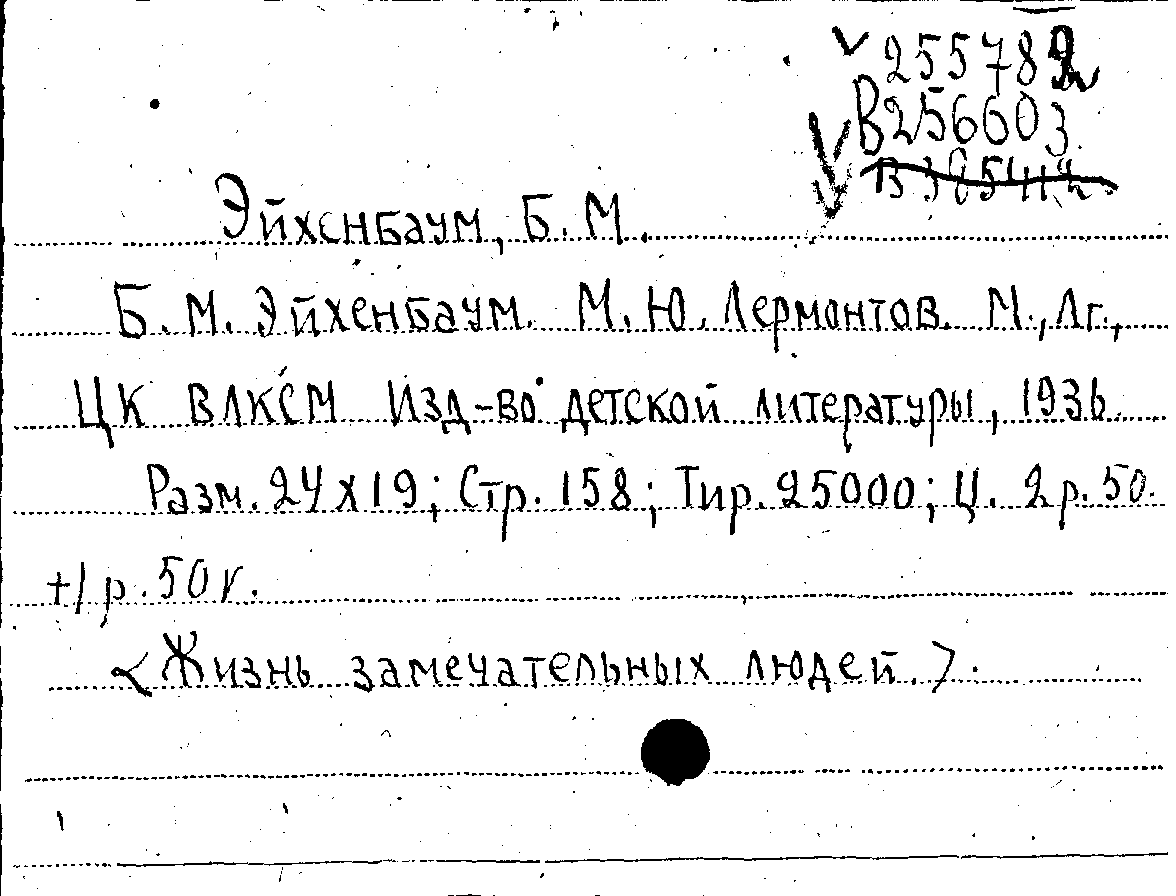 255782
В256603
В385412
Эйхенбаум, Б. М.
Б. М. Эйхенбаум. М. Ю. Лермонтов. М., Лг.,
ЦК ВЛКСМ Изд-во детской литературы, 1936.
Разм. 24х19; Стр. 158; Тир. 25000; Ц. 2 р. 50.
+1 р. 50 к.
<Жизнь замечательных людей.>.